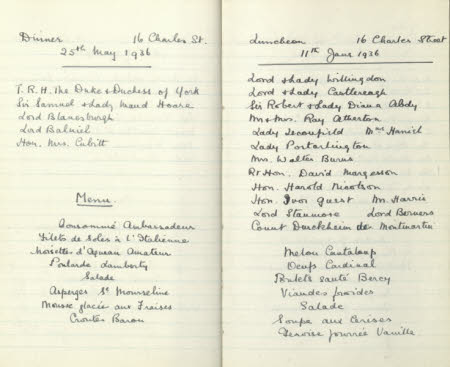 Dinner 16 Charles St.
25th May 1936
T.R.H. The Duke & Duchess of York
Sir Samuel & Lady Maud Hoare
Lord Blanesburgh
Lord Balniel
Hon. Mrs. Cubitt
Menu.
Consommé Ambassadeur
Filets de Soles à l'Italienne
Noisettes d'Agneau Amateur
Poularde Lamberty
Salade
Asperges Sc Mousseline
Mousse glacée aux Fraises
Croutes Baron
Luncheon 16 Charles Street
11th June 1936
Lord & Lady Willingdon
Lord & Lady Castlereagh
Sir Robert & Lady Diana Abdy
Mr & Mrs. Ray Atherton
Lady Leconfield
Lady Portarlington
Mrs. Walter Burns
Rt Hon. David Margesson
Hon. Harold Nicolson
Hon. Ivor Guest Mr. Harris
Lord Stanmore Lord Berners
Count Durckheim de Montmartin
Melon Cantaloup
Oeufs Cardinal
Poulets sauté Bercy
Viandes froides
Salade
Soupe aux Cerises
Genoise fourrée Vanille